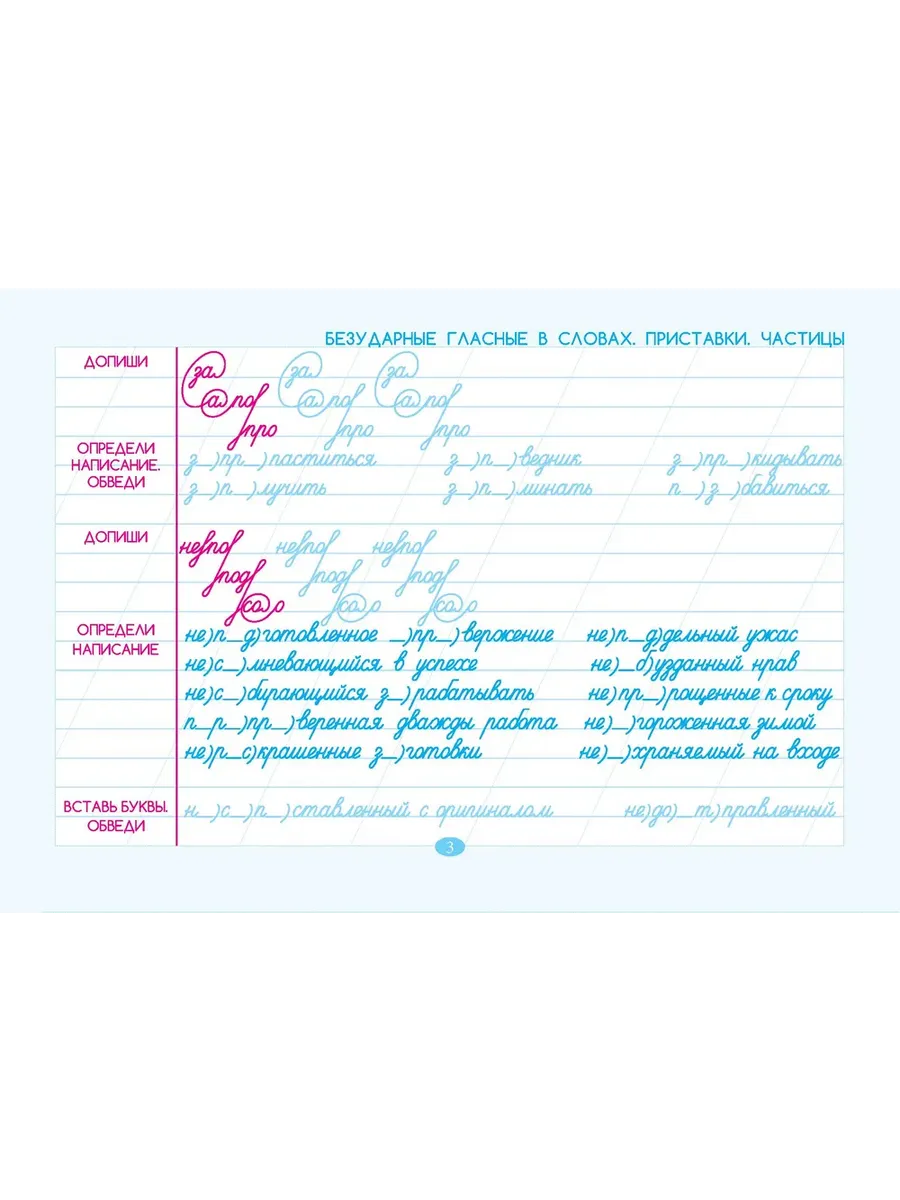 БЕЗУДАРНЫЕ ГЛАСНЫЕ В СЛОВАХ. ПРИСТАВКИ. ЧАСТИЦЫ
ДОПИШИ
за за за
а по а по а по
про про про
ОПРЕДЕЛИ НАПИСАНИЕ. ОБВЕДИ
з_)пр_)паститься з_)п_)ведник з_)пр_)кидывать
з_)п_)лучить з_)п_)минать п_)з_)бавиться
ДОПИШИ
не по не по не по
под под под
со о со о со о
ОПРЕДЕЛИ НАПИСАНИЕ
не)п_д)готовленное _)пр_)вержение не)п_д)дельный ужас
не)с_)мневающийся в успехе не)_б)узданный нрав
не)с_)бирающийся з_)рабатывать не)пр_)рощенные к сроку
п_р_)пр_)веренная дважды работа не)_)гороженная зимой
не)р_с)крашенные з_)готовки не)_)храняемый на входе
ВСТАВЬ БУКВЫ. ОБВЕДИ
н_)с_)п_)ставленный с оригиналом не)до)_т)правленный
3